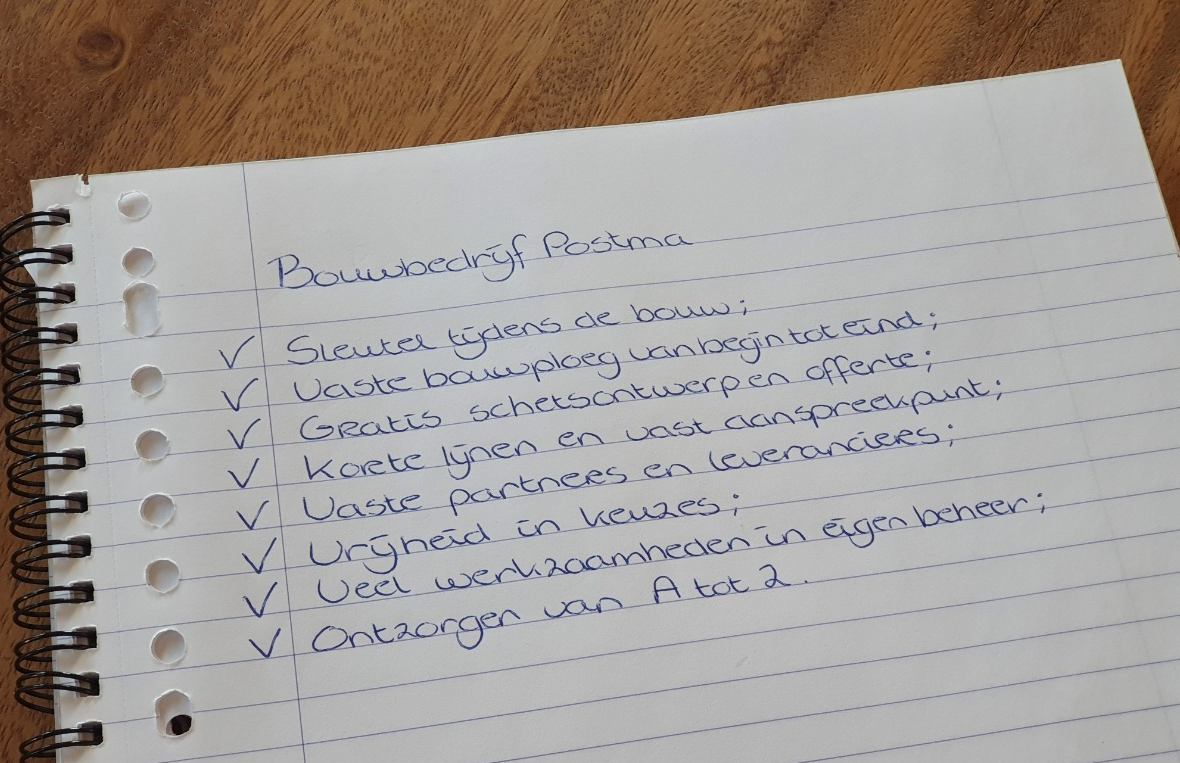 Bouwbedrijf Postma
✓ Sleutel tijdens de bouw;
✓ Vaste bouwploeg van begin tot eind;
✓ Gratis schetsontwerp en offerte;
✓ Korte lijnen en vast aanspreekpunt;
✓ Vaste partners en leveranciers;
✓ Vrijheid in keuzes;
✓ Veel werkzaamheden in eigen beheer;
✓ Ontzorgen van A tot Z.